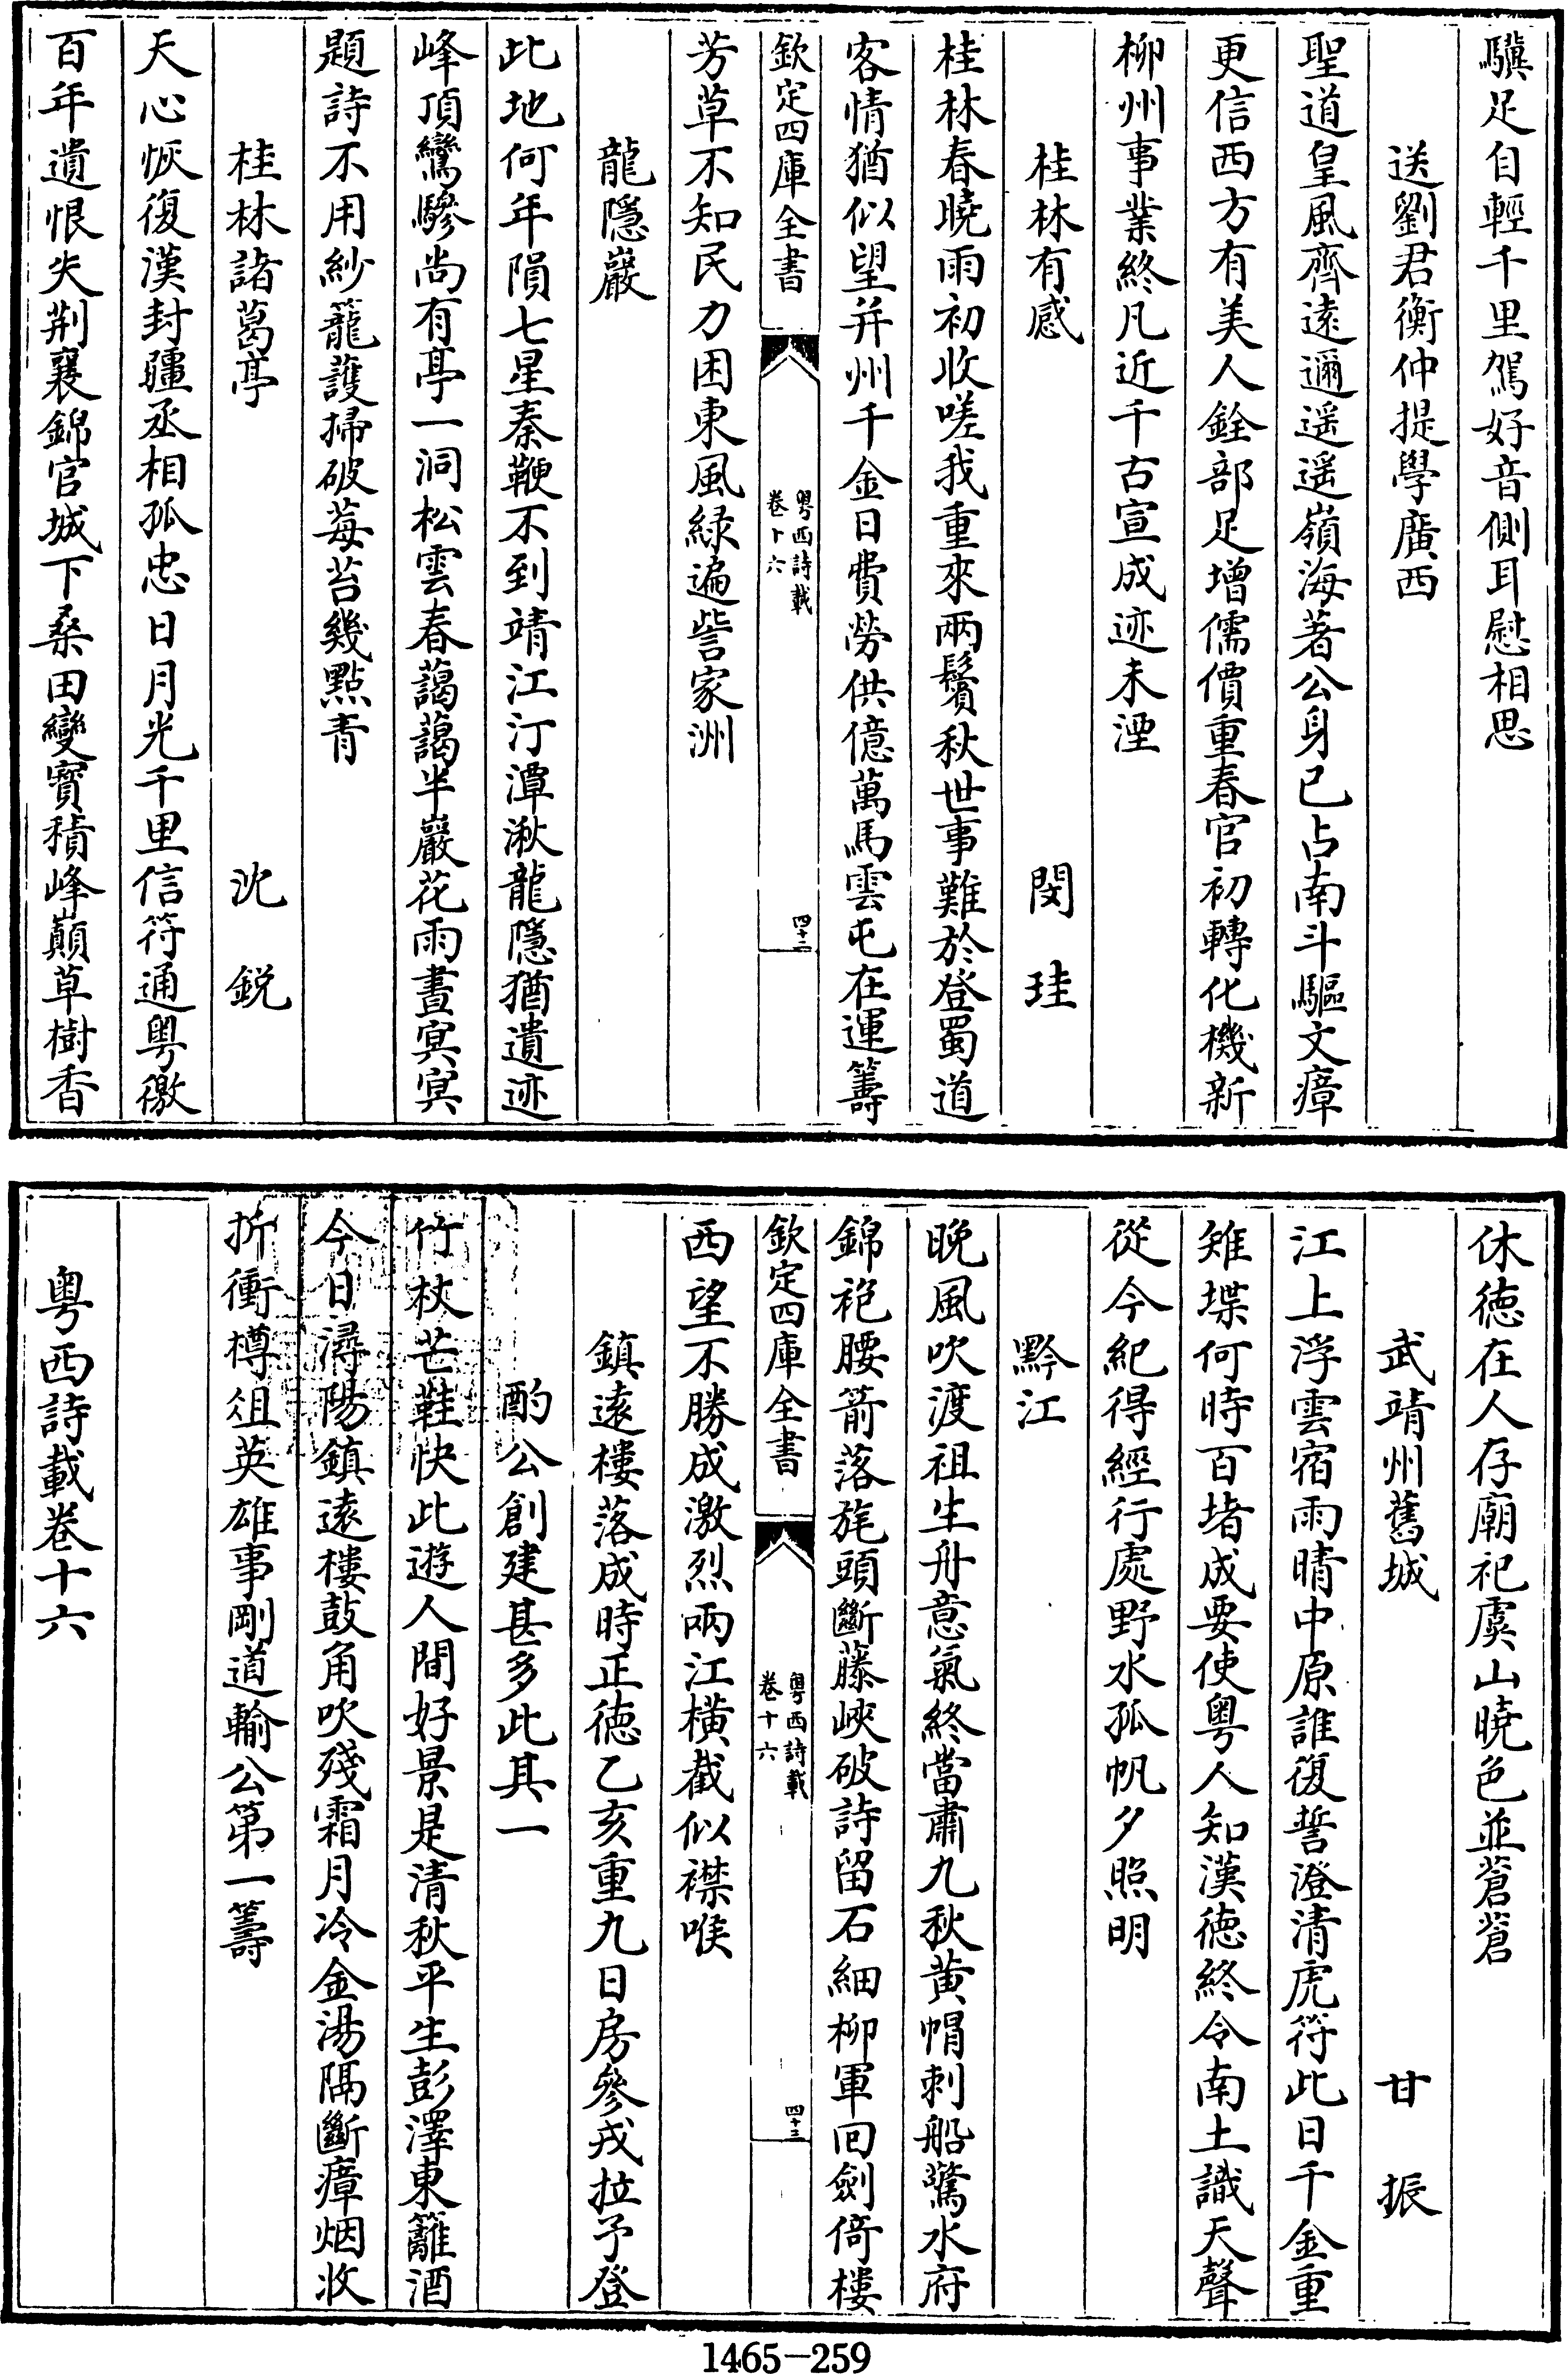 驥足自輕千里駕好音側耳慰相思
送劉君衡仲提學廣西
聖道皇風齊遠邇遥遥嶺海著公身已占南斗驅文瘴
更信西方有美人銓部足增儒價重春官初轉化機新
柳州事業終凡近千古宣成迹未湮
桂林有感 閔珪
桂林春曉雨初收嗟我重來兩鬢秋世事難於登蜀道
客情猶似望并州千金日費勞供億萬馬雲屯在運籌
欽定四庫全書 粤西詩載 卷十六 四十二
芳草不知民力困東風緑遍訾家洲
龍隱巖
此地何年隕七星秦鞭不到靖江汀潭湫龍隱猶遺迹
峰頂鸞驂尚有亭一洞松雲春藹藹半巖花雨晝冥冥
題詩不用紗籠護掃破莓苔幾點青
桂林諸葛亭 沈鋭
天心恢復漢封疆丞相孤忠日月光千里信符通粤徼
百年遺恨失荆襄錦官城下桑田變寳積峰巔草樹香
休徳在人存廟祀虞山曉色並蒼蒼
武靖州舊城 甘振
江上浮雲宿雨晴中原誰復誓澄清虎符此日千金重
雉堞何時百堵成要使粤人知漢徳終令南土識天聲
從今紀得經行處野水孤帆夕照明
黔江
晚風吹渡祖生舟意氣終當肅九秋黄帽刺船驚水府
錦袍腰箭落旄頭斷藤峽破詩留石細柳軍回劍倚樓
欽定四庫全書 粤西詩載 卷十六 四十三
西望不勝成激烈兩江横截似襟喉
鎮遠樓落成時正徳乙亥重九日房參戎拉予登
酌公創建甚多此其一
竹杖芒鞋快此遊人間好景是清秋平生彭澤東籬酒
今日潯陽鎮遠樓鼓角吹殘霜月冷金湯隔斷瘴烟收
折衝樽俎英雄事剛道輸公第一籌
粤西詩載卷十六
1465-259